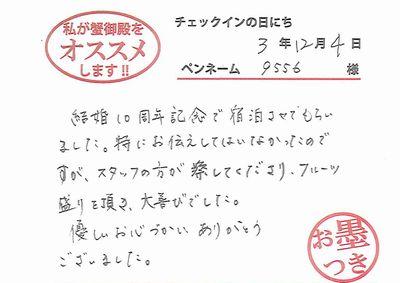 私が蟹御殿を
オススメ
します!!
チェックインの日にち
3年12月4日
ペンネーム 9556 様
結婚10周年記念で宿泊させてもらい
ました。特にお伝えしてはいなかったので
すが、スタッフの方が察してくださり、フルーツ
盛りを頂き、大喜びでした。
優しいお心づかいありがとう
ございました。
お墨
つき